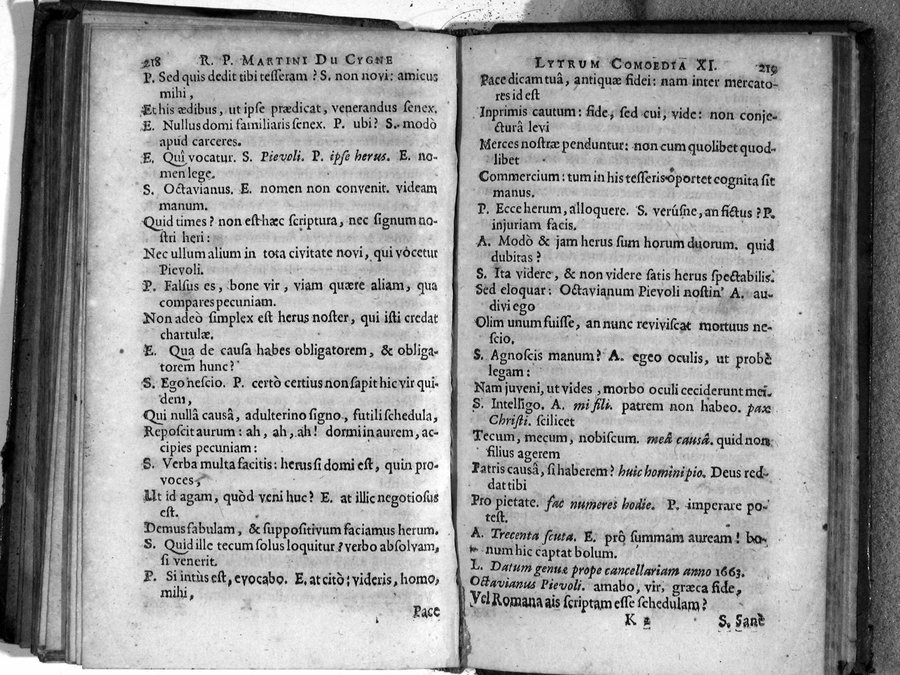 218 R. P. MARTINI DU CYGNE
P. Sed quis dedit tibi tesseram ? S. non novi: amicus
mihi,
Et his ædibus, ut ipse prædicat, venerandus senex.
E. Nullus domi familiaris senex. P. ubi? S. modò
apud carceres.
E. Quî vocatur. S. Pievoli. P. ipse herus. E. no-
men lege.
S. Octavianus. E. nomen non convenit. videam
manum.
Quid times? non est hæc scriptura, nec signum no-
stri heri:
Nec ullum alium in tota civitate novi, qui vocetur
Pievoli.
P. Falsus es, bone vir, viam quære aliam, qua
compares pecuniam.
Non adeò simplex est herus noster, qui isti credat
chartulæ.
E. Qua de causa habes obligatorem, & obliga-
torem hunc?
S. Ego nescio. P. certò certius non sapit hic vir qui-
dem,
Qui nullâ causâ, adulterino signo, futili schedula,
Reposcit aurum: ah, ah, ah! dormi in aurem, ac-
cipies pecuniam:
S. Verba multa facitis: herus si domi est, quin pro-
voces,
Ut id agam, quòd veni huc? E. at illic negotiosus
est.
Demus fabulam, & suppositivum faciamus herum.
S. Quid ille tecum solus loquitur? verbo absolvam,
si venerit.
P. Si intùs est, evocabo. E. at citò: videris, homo,
mihi,
Pace
LYTRUM COMOEDIA XI. 219
Pace dicam tuâ, antiquæ fidei: nam inter mercato-
res id est
Inprimis cautum: fide, sed cui, vide: non conje-
cturâ levi
Merces nostræ penduntur: non cum quolibet quod-
libet
Commercium: tum in his tesseris oportet cognita sit
manus.
P. Ecce herum, alloquere. S. verúsne, an fictus? P.
injuriam facis.
A. Modò & jam herus sum horum duorum. quid
dubitas ?
S. Ita videre, & non videre satis herus spectabilis.
Sed eloquar: Octavianum Pievoli nostin' A. au-
divi ego
Olim unum fuisse, an nunc reviviscat mortuus ne-
scio,
S. Agnoscis manum? A. egeo oculis, ut probè
legam:
Nam juveni, ut vides, morbo oculi ceciderunt mei.
S. Intelligo. A. mi fili. patrem non habeo. pax
Christi. scilicet
Tecum, mecum, nobiscum. meâ causâ. quid non
filius agerem
Patris causâ, si haberem? huic homini pio. Deus red-
dat tibi
Pro pietate. fac numeres hodie. P. imperare po-
test.
A. Trecenta scuta. E. prô summam auream! bo-
num hic captat bolum.
L. Datum genuæ prope cancellariam anno 1663.
Octavianus Pievoli. amabo, vir, græca fide,
Vel Romana ais scriptam esse schedulam?
K 2 S. Sanè